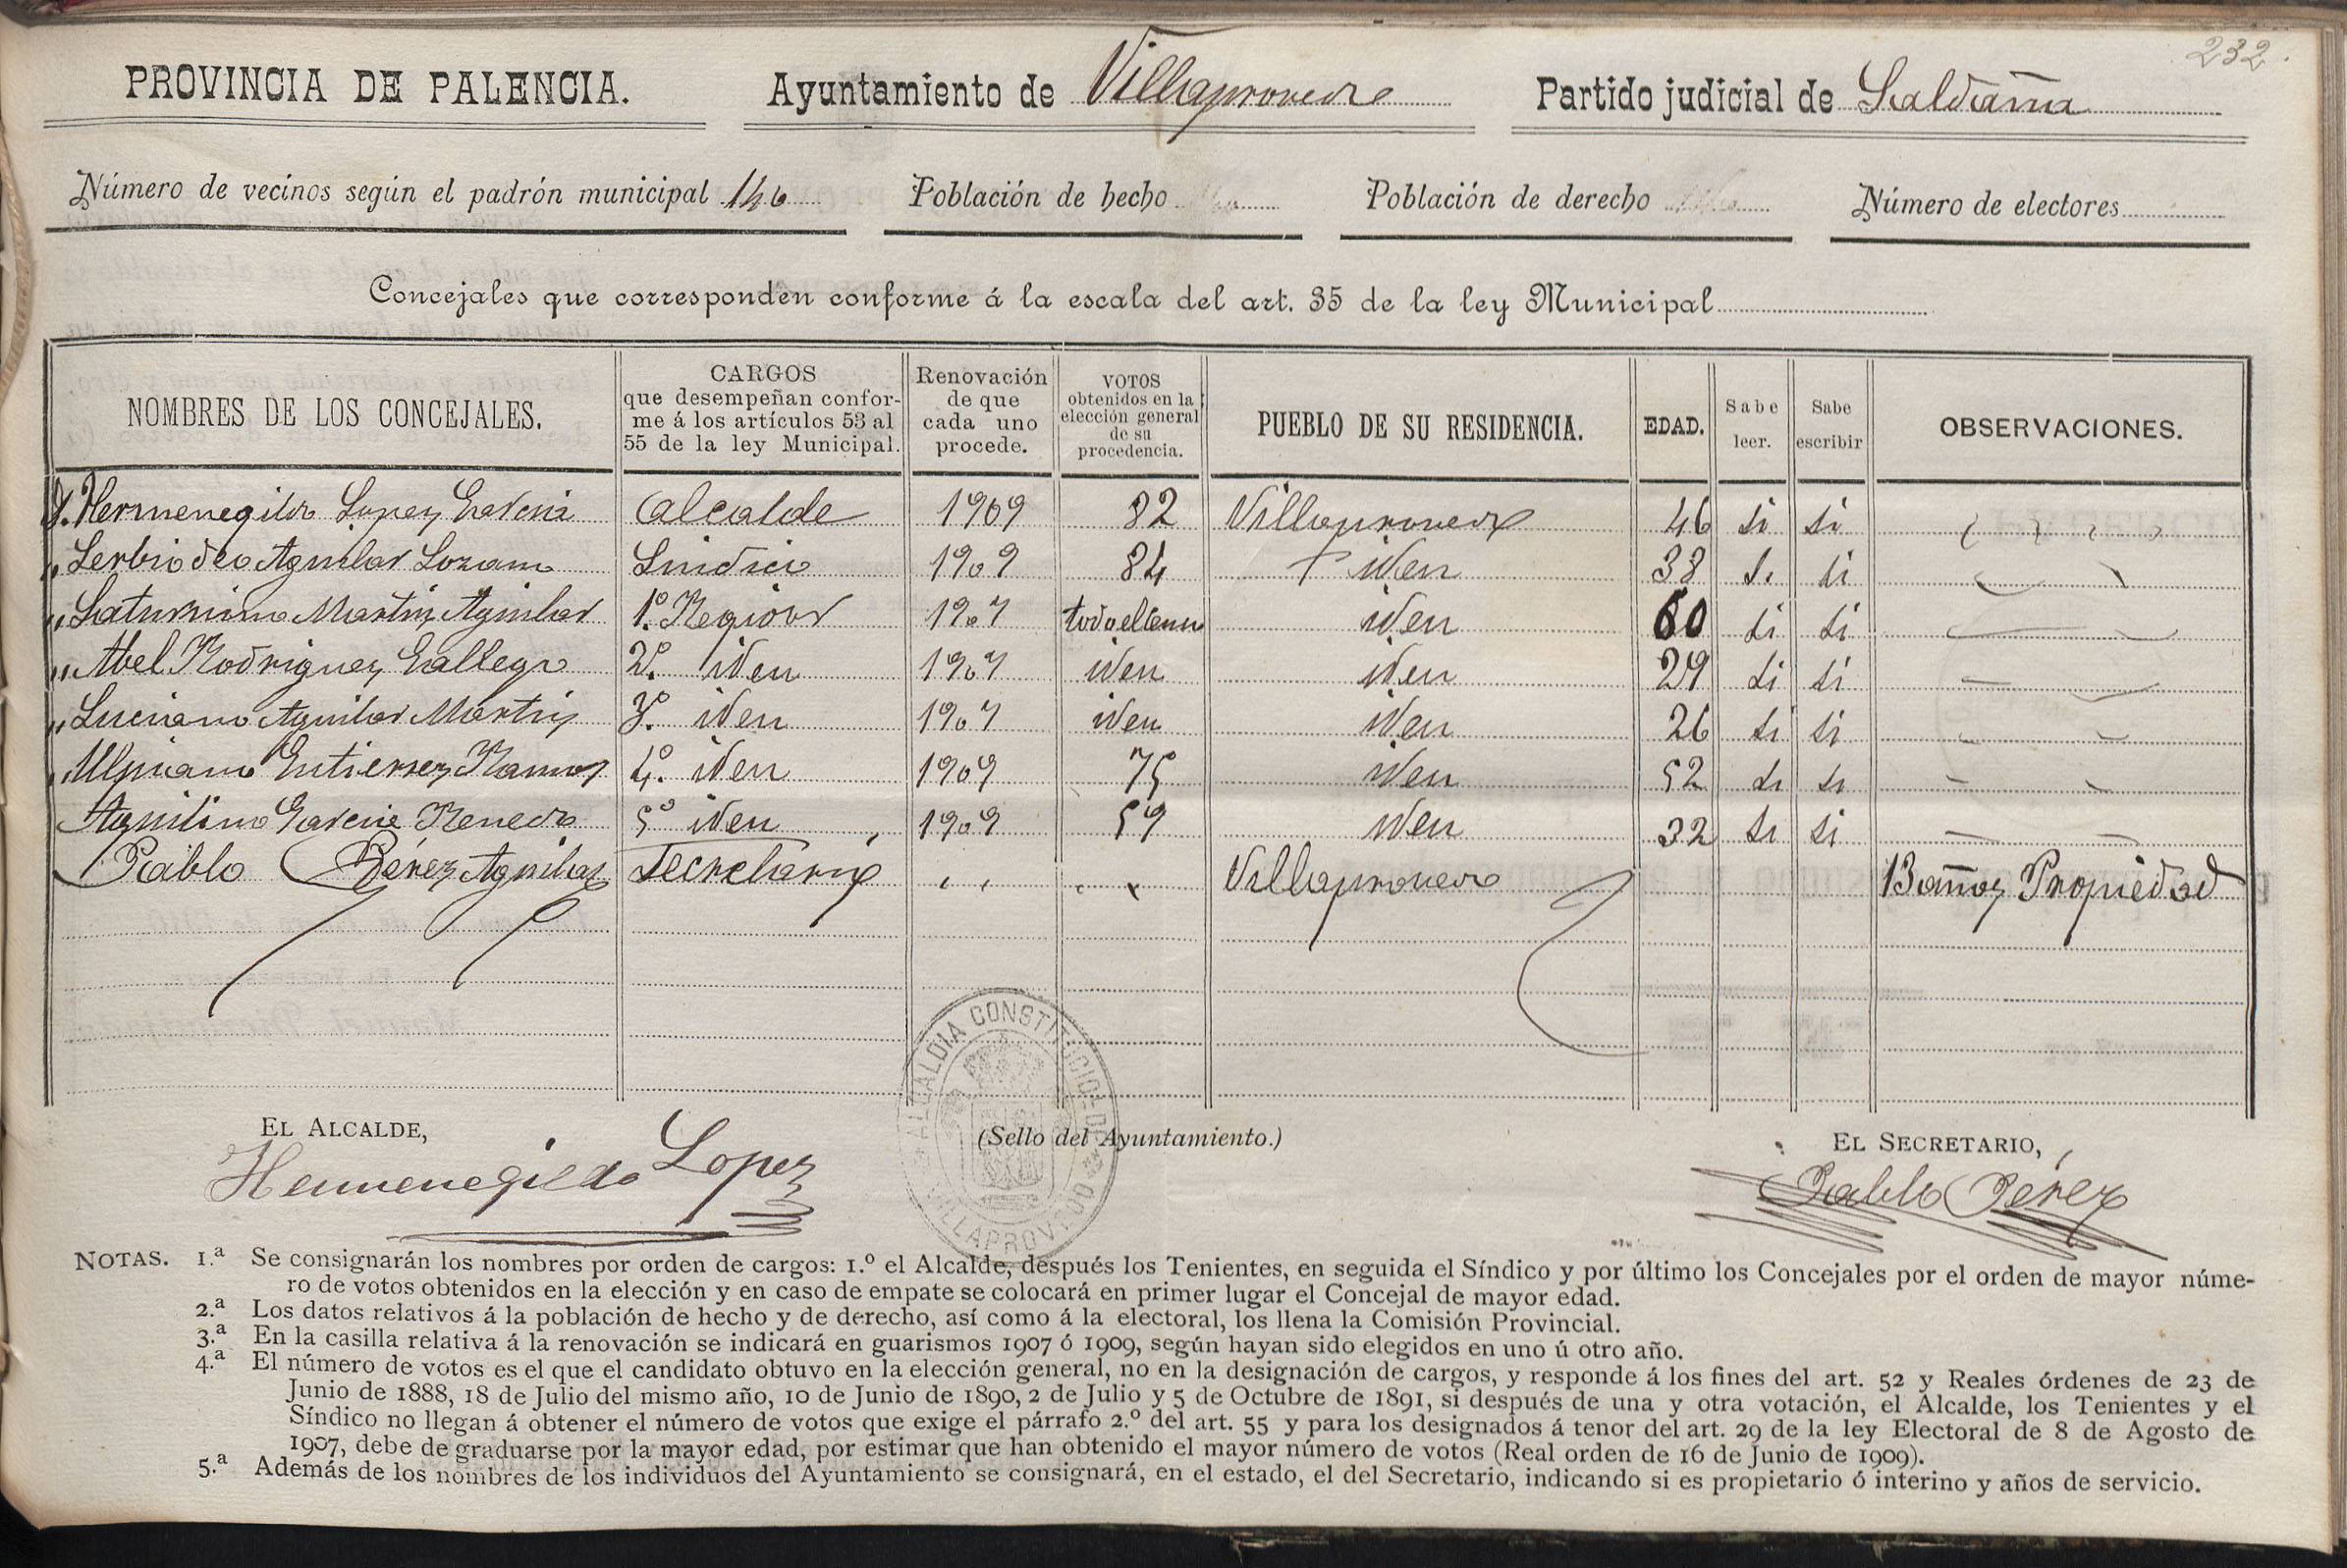 232.
PROVINCIA DE PALENCIA. Ayuntamiento de Villaprovedo Partido judicial de Saldaña
Número de vecinos según el padrón municipal 146 Población de hecho Población de derecho Número de electores
Concejales que corresponden conforme á la escala del art. 35 de la ley Municipal
NOMBRES DE LOS CONCEJALES. CARGOS que desempeñan confor- me á los artículos 53 al 55 de la ley Municipal. Renovación de que cada uno procede. VOTOS obtenidos en la elección general de su procedencia. PUEBLO DE SU RESIDENCIA. EDAD. Sabe leer. Sabe escribir OBSERVACIONES.
D. Hermenegildo Lopez Garcia Alcalde 1909 82 Villaprovedo 46 si si
" Serbio deo Aguilar Lozano Sindico 1909 84 iden 38 si si
" Saturnino Martin Aguilar 1º Regidor 1907 todo el censo iden 60 si si
" Abel Rodriguez Gallego 2º iden 1907 iden iden 29 si si
" Luciano Aguilar Martin 3º iden 1907 iden iden 26 si si
" Ulpiano Gutierrez Ramos 4º iden 1909 75 iden 52 si si
Aquilino Garcia Renedo 5º iden 1909 59 iden 32 si si
Pablo Pérez Aguilar Secretario " " " " Villaprovedo 13 años Propiedad
ALCALDIA CONSTITUCIONAL DE VILLAPROVEDO
EL ALCALDE, (Sello del Ayuntamiento.) EL SECRETARIO,
Hermenegildo Lopez Pablo Pérez
NOTAS. 1.ª Se consignarán los nombres por orden de cargos: 1.º el Alcalde, después los Tenientes, en seguida el Síndico y por último los Concejales por el orden de mayor núme-
ro de votos obtenidos en la elección y en caso de empate se colocará en primer lugar el Concejal de mayor edad.
2.ª Los datos relativos á la población de hecho y de derecho, así como á la electoral, los llena la Comisión Provincial.
3.ª En la casilla relativa á la renovación se indicará en guarismos 1907 ó 1909, según hayan sido elegidos en uno ú otro año.
4.ª El número de votos es el que el candidato obtuvo en la elección general, no en la designación de cargos, y responde á los fines del art. 52 y Reales órdenes de 23 de
Junio de 1888, 18 de Julio del mismo año, 10 de Junio de 1890, 2 de Julio y 5 de Octubre de 1891, si después de una y otra votación, el Alcalde, los Tenientes y el
Síndico no llegan á obtener el número de votos que exige el párrafo 2.º del art. 55 y para los designados á tenor del art. 29 de la ley Electoral de 8 de Agosto de
1907, debe de graduarse por la mayor edad, por estimar que han obtenido el mayor número de votos (Real orden de 16 de Junio de 1909).
5.ª Además de los nombres de los individuos del Ayuntamiento se consignará, en el estado, el del Secretario, indicando si es propietario ó interino y años de servicio.